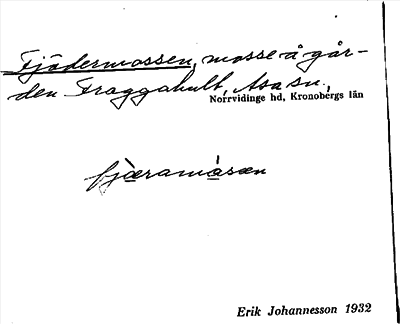 Fjädermossen, mosse å går-
den Fraggahult, Asa sn.,
Norrvidinge hd, Kronobergs län
fjæramåsæn
Erik Johannesson 1932